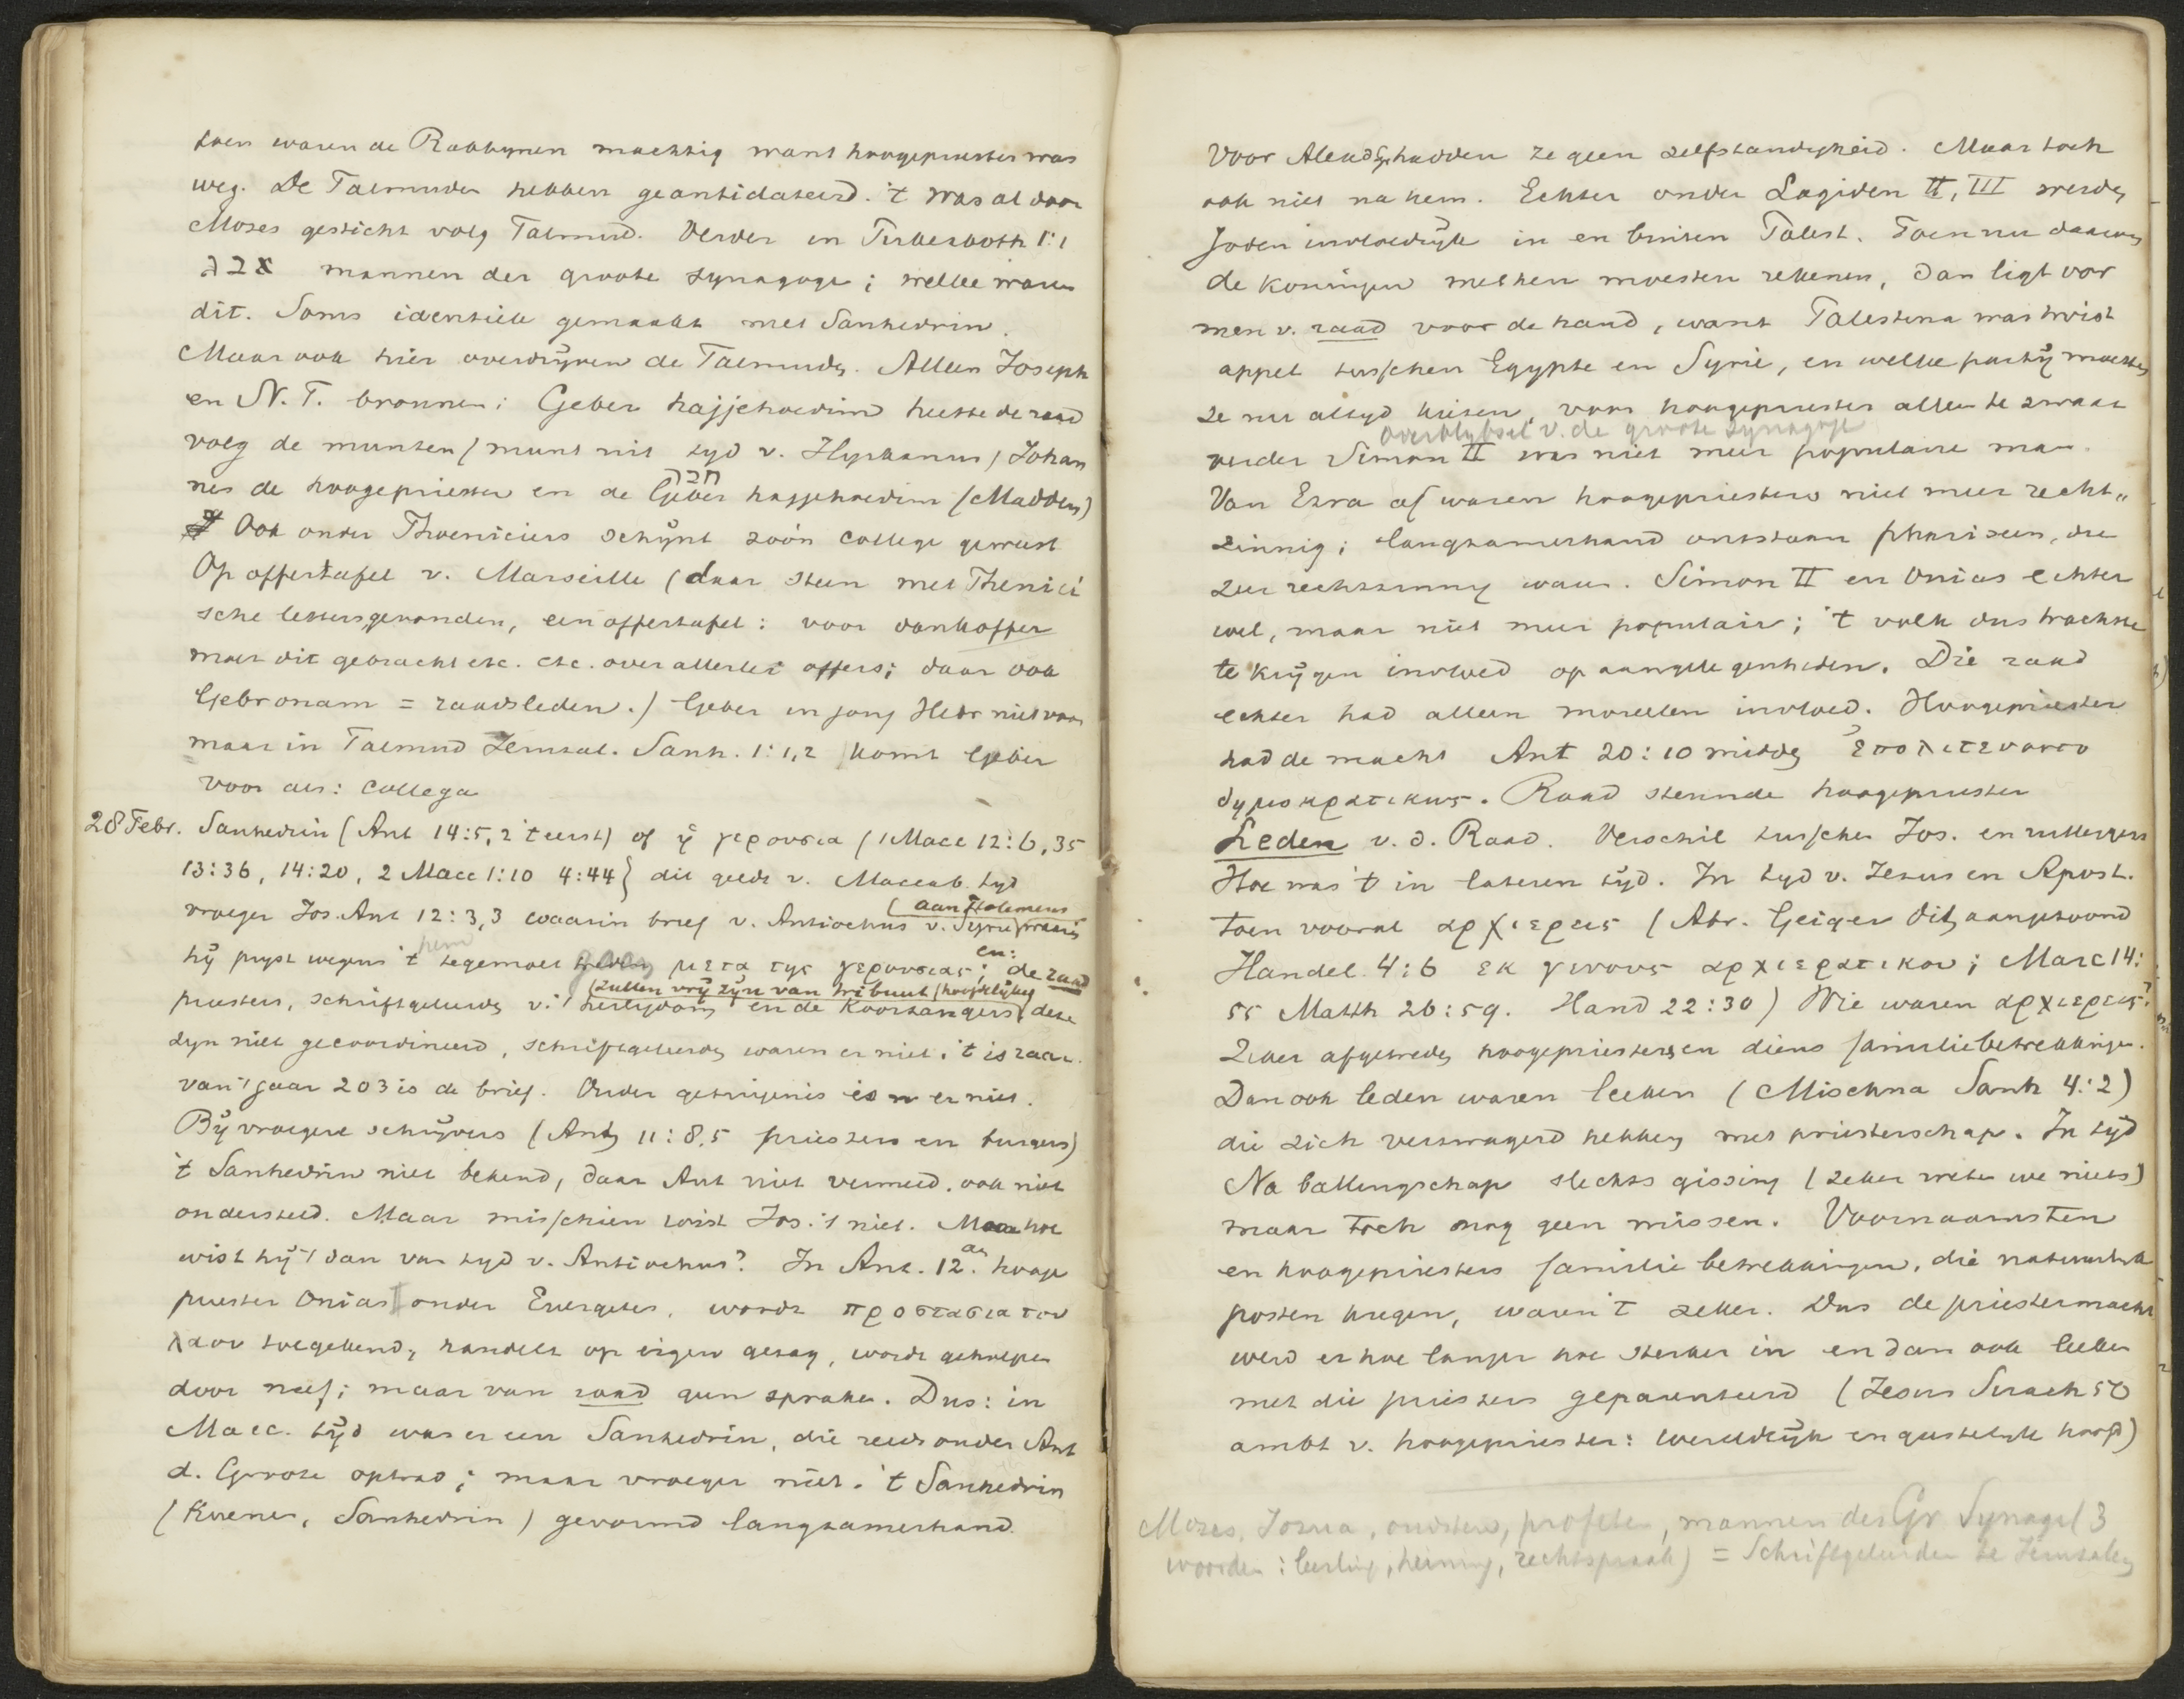 toen waren de Rabbynen machtig want hoogepriester was
weg. De Talmudes hebben geantidateerd. 't was al door
Moses gesticht volg Talmud. Verder in Pirkeaboth 1:1
mannen der groote synagoge; welke waren
dit. Soms identiek gemaakt met Sanhedrin.
Maar ook hier overdryven de Talmudes. Alleen Joseph
en N. T. bronnen: Geber hajjehoedim heette de raad
volg de munten (munt uit tyd v. Hyrkanus) Johan
nes de hoogepriester en de Geber hajjehoedim (Madden)
חבר
Ook onder Phoeniciers schynt zoo'n college geweest
Op offertafel v. Marseille (daar steen met Phenici
sche letters gevonden, een offertafel: voor dankoffer
moet dit gebracht etc. etc. over allerlei offers; daar ook
Gebronam = raadsleden.) Geber in jong Hebr niet voor
maar in Talmud Jerusal. Sanh. 1:1,2 komt Geber
voor als: collega
28 Febr. Sanhedrin (Ant 14:5,2 't eerst) of ἡ γερουσια (1 Macc 12:6,35
13:36, 14:20, 2 Macc 1:10 4:44) dit geldt v. Maccab. tyd
vroeger Jos. Ant 12:3,3 waarin brief v. Antiochus v. Syrie waarin
(aan Ptolemeus
hy pryst wegens 't tegemoet gaan μετα της γερουσιας; en: de raad
(zullen vry zyn van tribuut
priesters, schriftgeleerds v. 't heiligdom en de Koorzangers deze
zyn niet gecoordineerd, schriftgeleerdes waren er niet; 't is raar.
van 't jaar 203 is de brief. Ouder getuigenis is er niet.
By vroegere schryvers (Ant 11:8,5 priesters en burgers)
't Sanhedrin niet bekend, daar Ant niet vermeld, ook niet
ondersteld. Maar misschien wist Jos. 't niet. Maar hoe
wist hy 't dan van tyd v. Antiochus? In Ant. 12 hooge
priester Onias onder Euergetes, wordt προστασια του
λαου toegekend, handelt op eigen gezag, wordt geholpen
door neef; maar van raad geen sprake. Dus: in
Macc. tyd was er een Sanhedrin, die reeds onder Ant
d. Groote optrad; maar vroeger niet. 't Sanhedrin
(Kuenen, Sanhedrin) gevormd langzamerhand.
Voor Alexd hadden ze geen zelfstandigheid. Maar toch
ook niet na hem. Echter onder Lagiden II, III werden
Joden invloedryk in en buiten Palest. Toen nu daarom
de koningen met hen moesten rekenen, dan ligt vor
men v. raad voor de hand, want Palestina was twist
appel tusschen Egypte en Syrie, en welke party moesten
ze nu altyd kiezen, voor hoogepriester alleen te zwaar
overblyfsel v. de groote Synagoge
verder Simon II was niet meer populaire man.
Van Ezra af waren hoogepriesters niet meer recht„
zinnig; langzamerhand ontstaan phariseen, die
zeer rechtzinnig waren. Simon II en Onias echter
wel, maar niet meer populair; 't volk dus trachtte
te krygen invloed op aangelegenheden. Die raad
echter had alleen moreelen invloed. Hoogepriester
had de macht Ant 20:10 midde ἐπολιτευοντο
δημοκρατικως. Raad steunde hoogepriester
Leden v. d. Raad. Verschil tusschen Jos. en
Hoe was 't in lateren tyd. In tyd v. Jezus en Apost.
toen vooral αρχιερεις (Abr. Geiger dit aangetoond
Handel. 4:6 εκ γενους αρχιερατικου; Marc 14:
55 Matth 26:59. Hand 22:30) Wie waren αρχιερεις?
Zeker afgetredes hoogepriesters en diens familiebetrekkingen.
Dan ook leden waren leeken (Mischna Sanh 4:2)
die zich verzwagerd hebben met priesterschap. In tyd
Na ballingschap slechts gissing (zeker weten we niets)
maar toch nog geen missen. Voornaamsten
en hoogepriesters familie betrekkingen, die natuurlyk
posten kregen, waren 't zeker. Dus de priestermacht
werd er hoe langer hoe sterker in en dan ook leeken
met die priesters geparenteerd (Jesus Sirach 50
ambt v. hoogepriester: wereldlyk en geestelyk hoofd)
Mozes, Jozua, oudsten, profeten, mannen der Gr Synagoge (3
woorden: leerling, heining, rechtspraak) = Schriftgeleerden te Jerusalem